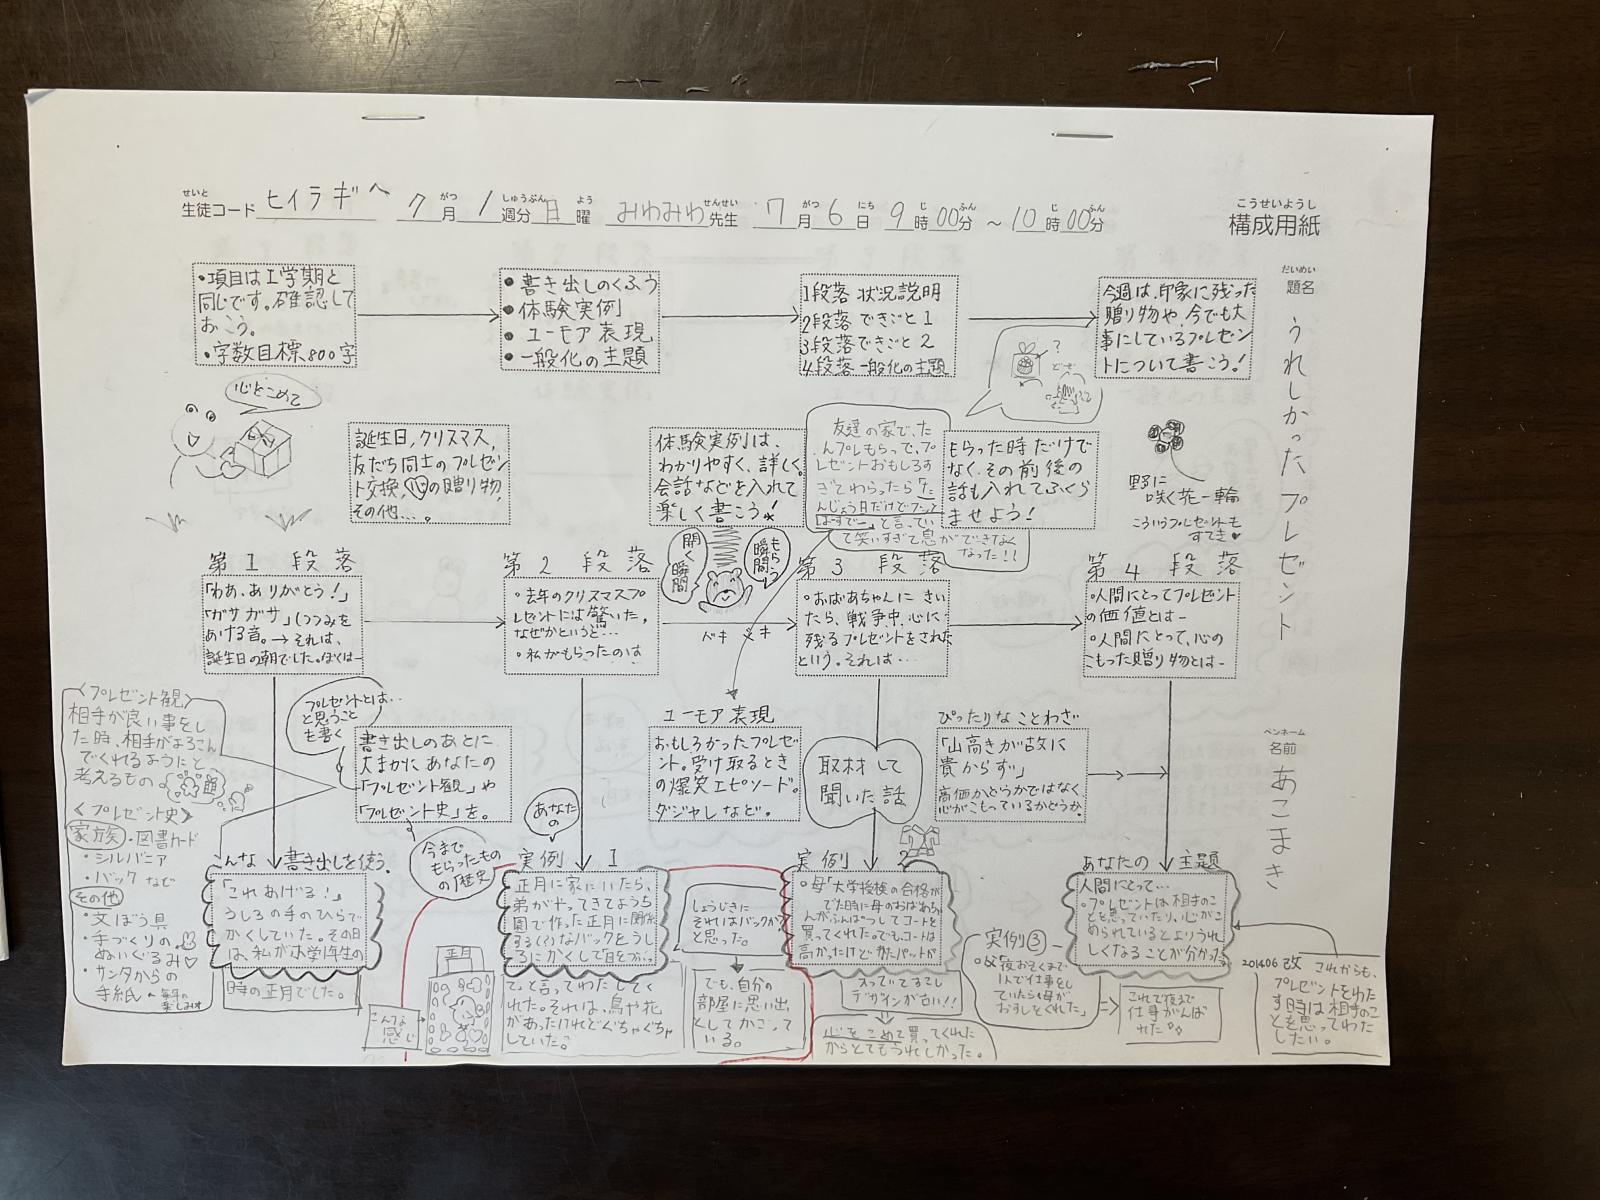 せいと がつ しゅうぶん よう せんせい がつ にち じ ふん じ ふん
生徒コード ヒイラギへ 7月 1週分 日曜 みわみわ先生 7月6日 9時00分 ～ 10時00分
こうせいようし
構成用紙
だいめい
題名
うれしかったプレゼント
ペンネーム
名前
あこまき
・項目はI学期と
同じです。確認して
おこう。
・字数目標800字
●書き出しのくふう
●体験実例
●ユーモア表現
●一般化の主題
1段落 状況説明
2段落 できごと1
3段落 できごと2
4段落 一般化の主題
今週は、印象に残った
贈り物や、今でも大
事にしているプレゼン
トについて書こう!
心をこめて
誕生日,クリスマス,
友だち同士のプレゼン
ト交換,心の贈り物,
その他…。
体験実例は、
わかりやすく、詳しく。
会話などを入れて
楽しく書こう!
友達の家で、た
んプレもらって、プ
レゼントおもしろす
ぎてわらったら「た
んじょう日だけでフッ
はずでー」と言ってい
て笑いすぎて息ができなく
なった!!
?
もらった時だけで
なく、その前後の
話も入れてふくら
ませよう!
野に
咲く花一輪
こういうプレゼントも
すてき♥
第1段落
「わあ、ありがとう!」
「ガサガサ」(つつみを
あける音。→それは、
誕生日の朝でした。ぼくは―
第2段落
・去年のクリスマスプ
レゼントには驚いた,
なぜかというと…
・私がもらったのは
開く瞬間
もらう瞬間
ベキ
第3段落
・おばあちゃんに きい
たら、戦争中、心に
残るプレゼントをされた
という。それは…
第4段落
・人間にとってプレゼント
の価値とは―
・人間にとって、心の
こもった贈り物とは―
<プレゼント観>
相手が良い事をし
た時、相手がよろこん
でくれるようにと
考えるもの
<プレゼント史>
家族・図書カード
・シルバニア
・バック など
その他
・文ぼう具
・手づくりの
ぬいぐるみ♡
・サンタからの
手紙 ←毎年の楽しみ
プレゼントとは…
と思うこと
も書く
書き出しのあとに、
大まかに、あなたの
「プレゼント観」や
「プレゼント史」を。
今まで
もらったもの
の歴史
ユーモア表現
おもしろかったプレゼ
ント。受け取るとき
の爆笑エピソード。
ダジャレなど。
取材して
聞いた話
ぴったりなことわざ
「山高きが故に
貴からず」
高価かどうかではなく
心がこもっているかどうか。
んな 書き出しを使う.
「これあげる!」
うしろの手のひらで
かくしていた。その日
は、私が小学1年生の
時の正月でした。
あなたの
実例 1
正月に家にいたら、
弟がやってきてようち
園で作った正月に関係
する(?)なバックをうし
ろにかくして「目をつぶっ
て。」と言ってわたしてく
れた。それは、鳥や花
があったけれどぐちゃぐちゃ
していた。
正月
こんな
感じ
しょうじきに
それはバックかな
と思った。
でも、自分の
部屋に思い出
としてかざって
いる。
実例 2
・母「大学授検の合格が
でた時に母のおばあちゃ
んがふんぱつしてコートを
買ってくれた。でもコートは
高かったけど肩パットが
入っててるてし
デザインが古い!!
心をこめて買ってくれた
からとてもうれしかった。
実例③
・父「夜おそくまで
1人で仕事をし
ていたら母が
おすしをくれた」
これで夜まで
仕事がんば
れた。
あなたの 主題
人間にとって…
・プレゼントは相手のこ
とを思っていたり、心がこ
められているとよりうれ
しくなることが分かった
201406改
これからも、
プレゼントをわた
す時は相手のこ
とを思ってわた
したい。